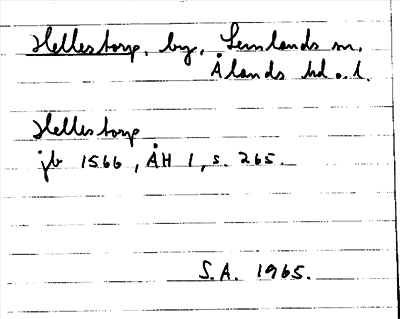 Hellestorp, by, Lemlands sn.
Ålands hd o. l.
Hellestorp
jb 1566, ÅH 1, s. 265.
S.A. 1965.